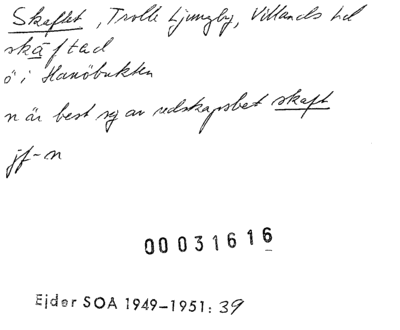 Skaftet, Trolle Ljungby, Villands hd
skäftad
ö i Hanöbukten
n är best sg av redskapsbet skaft
jf-n
00 031616
Ejder SOA 1949-1951: 39